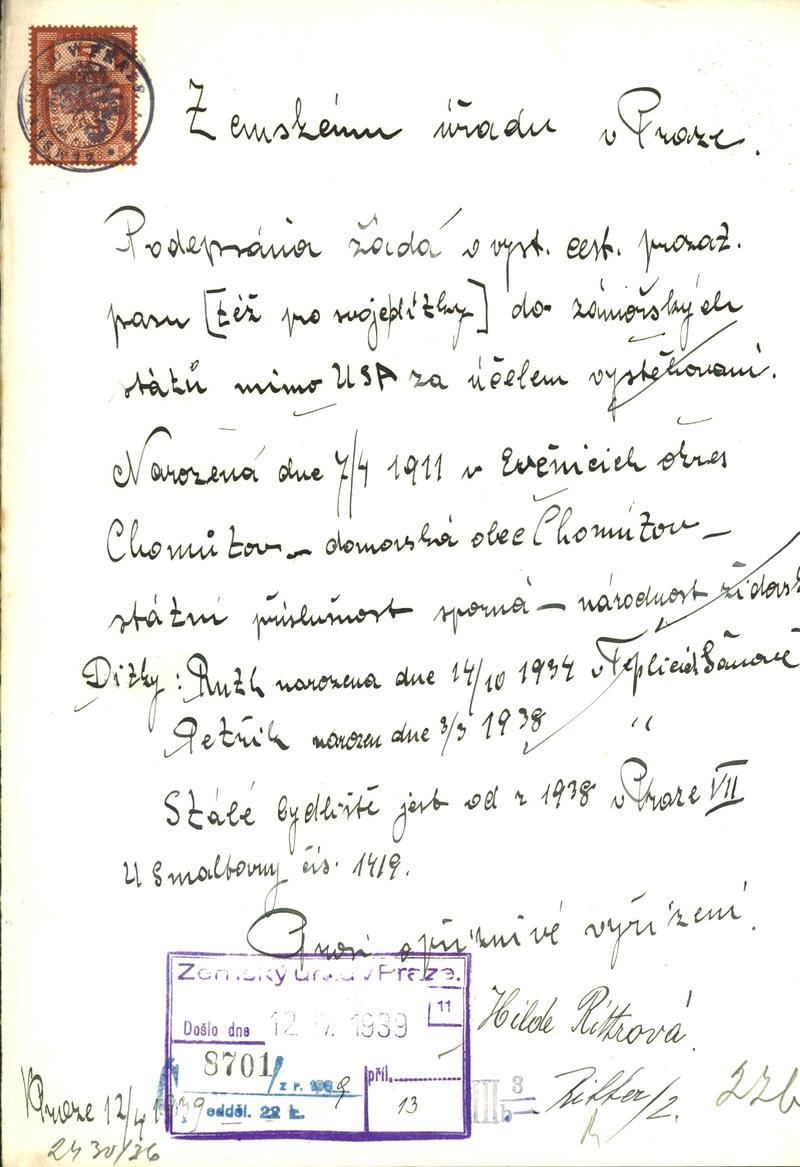 Zemskému úřadu v Praze.
Podepsána žádá o vyst. cest. pozat.
pasu [též pro svoje dítky] do zámořských
států mimo USA za účelem vystěhovaní.
Narozená dne 7/4 1911 v okres
Chomůtov – domovská obec Chomútov –
státní příslušnost sporná – národnost židovs
Dítky: Ruth narozena dne 14/10 1934 v Teplicich Šanově
Petřík narozen dne 3/3 1938 "
Stálé bydliště jest od r 1938 v Praze VII
U Smaltovny čís. 1419.
Prosí o příznivé vyřízení.
Hilde Rittrová
Zemský úřad v Praze.
Došlo dne 12. IV. 1939
11
8701/ z r. 1939
odděl. 22 k.
příl.
13
Praze 12/4 1939
2430/36
III b 3
Ritter/2.
22b